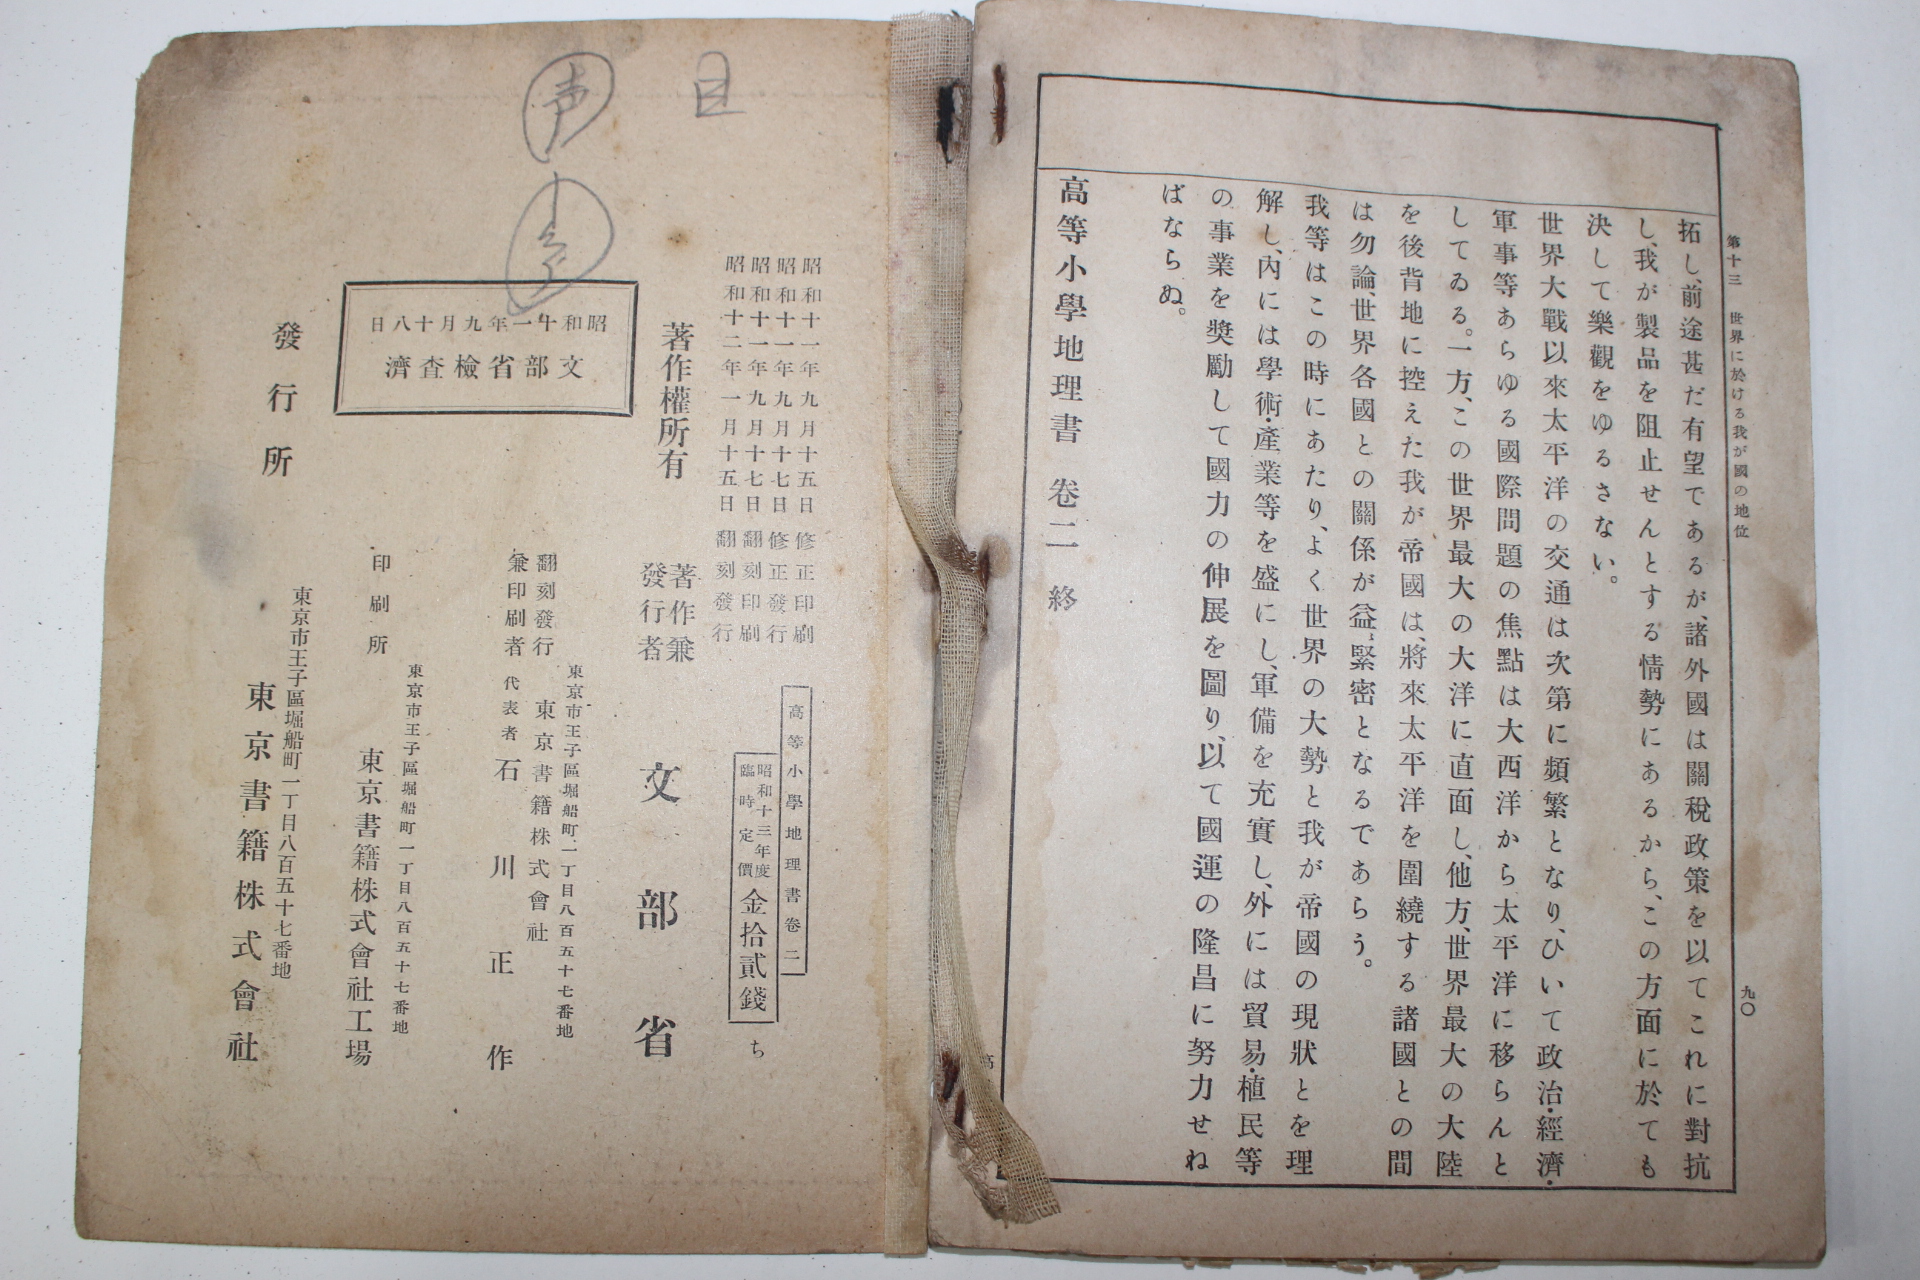 第十三 世界に於ける我が國の地位
九〇
拓し、前途甚だ有望であるが、諸外國は關稅政策を以てこれに對抗
し、我が製品を阻止せんとする情勢にあるから、この方面に於ても
決して樂觀をゆるさない。
世界大戰以來太平洋の交通は次第に頻繁となり、ひいて政治・經濟・
軍事等あらゆる國際問題の焦點は大西洋から太平洋に移らんと
してゐる。一方、この世界最大の大洋に直面し、他方、世界最大の大陸
を後背地に控えた我が帝國は、將來太平洋を圍繞する諸國との間
は勿論、世界各國との關係が益〻緊密となるであらう。
我等はこの時にあたり、よく世界の大勢と我が帝國の現狀とを理
解し、內には學術・產業等を盛にし、軍備を充實し、外には貿易・植民等
の事業を奬勵して國力の伸展を圖り、以て國運の隆昌に努力せね
ばならぬ。
高等小學地理書 卷二 終
昭和十一年九月十五日 修正印刷
昭和十一年九月十七日 修正發行
昭和十一年九月十七日 翻刻印刷
昭和十二年一月十五日 翻刻發行
高等小學地理書卷二
昭和十三年度
臨時定價
金拾貳錢
ち
著作權所有
著作兼
發行者
文部省
東京市王子區堀船町一丁目八百五十七番地
翻刻發行
兼印刷者
東京書籍株式會社
代表者 石川正作
昭和十一年九月十八日
文部省檢査濟
東京市王子區堀船町一丁目八百五十七番地
印刷所
東京書籍株式會社工場
東京市王子區堀船町一丁目八百五十七番地
發行所
東京書籍株式會社
声